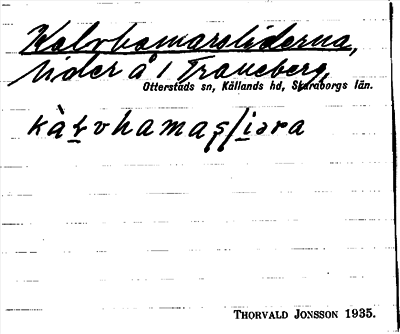 Kalvhamarsliderna,
lider å 1 Traneberg,
Otterstads sn, Kållands hd, Skaraborgs län.
THORVALD JONSSON 1935.